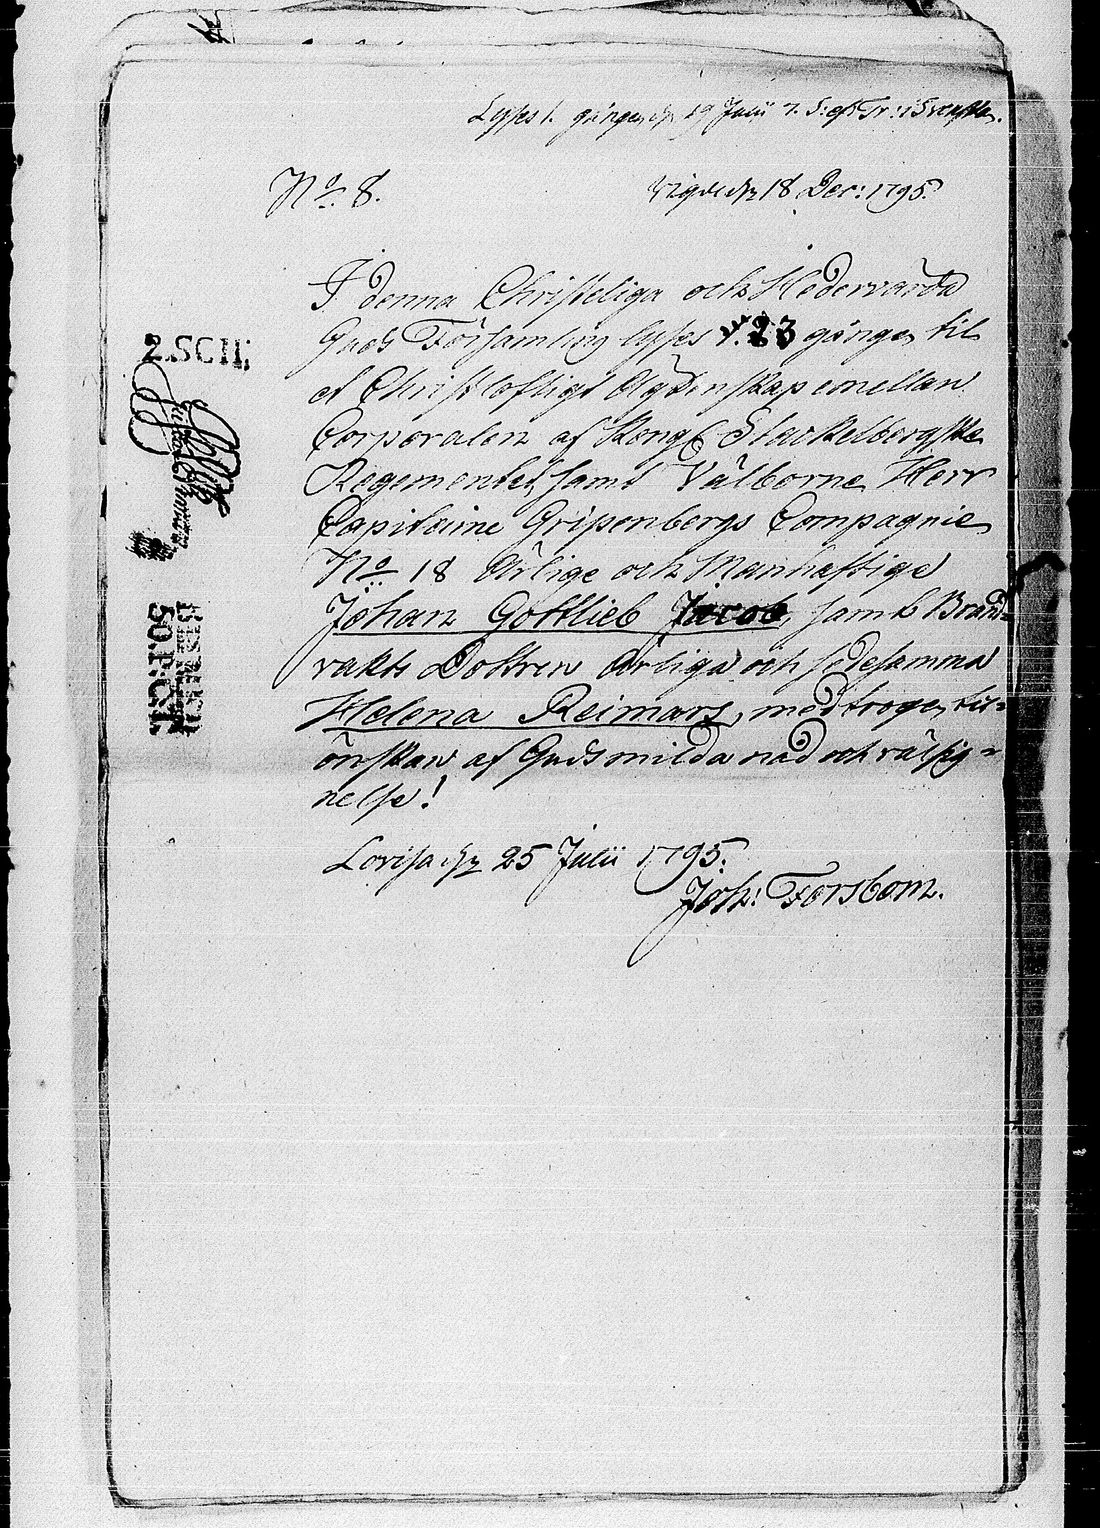 Lyses 1. gången dn 19 Julii 7. S: eft Tr: i Svenska.
No. 8.
Vigde dn 18 Dec: 1795.
I denna Christeliga och Hedervärda
Guds Församling lyses 1. 2 3 gången til
et Christloftigt Ägtenskap emellan
Corporalen af Kongl Stackelbergska
Regementet, samt Välborne Herr
Capitaine Gripenbergs Compagnie
No 18 Ärlige och Manhaftige
Johan Gottlieb Jacob, samt Brand-
vakts Dottren Ärliga och sedesamma
Helena Reimars, med trogen til-
önskan af Guds milda nåd och välsig-
nelse!
Lovisa dn 25 Julii 1795.
Joh: Forsbom.
2. SCH: